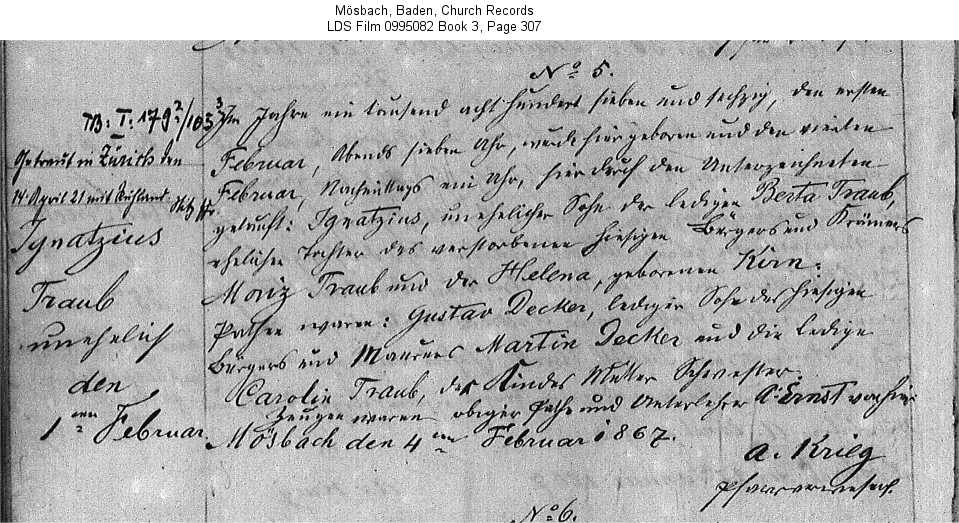 Mösbach, Baden, Church Records
LDS Film 0995082 Book 3, Page 307
No 5.
TB: I: 179 2/103 3
Getraut in Zürich den
14 April 21 mit
Ignatzius
Traub
unehelich
den
1ten Februar.
Im Jahre ein tausend acht hundert sieben und sechzig, den ersten
Februar, Abends sieben Uhr, wurde hier geboren und den vierten
Februar, Nachmittags ein Uhr, hier durch den Unterzeichneten
getauft: Ignatzius, unehelicher Sohn der ledigen Berta Traub,
ehelichen Tochter des verstorbenen hiesigen Bürgers und Krämers
Moriz Traub und der Helena, geborenen Korn:
Pathen waren: Gustav Decker, lediger Sohn des hiesigen
Bürgers und Maurers Martin Decker und die ledige
Carolin Traub, des Kindes Mutter Schwester.
Zeugen waren obiger Pathe und Unterlehrer A. Ernst von hier
Mösbach den 4ten Februar 1867.
A. Krieg
Pfarrverweser.
No 6.